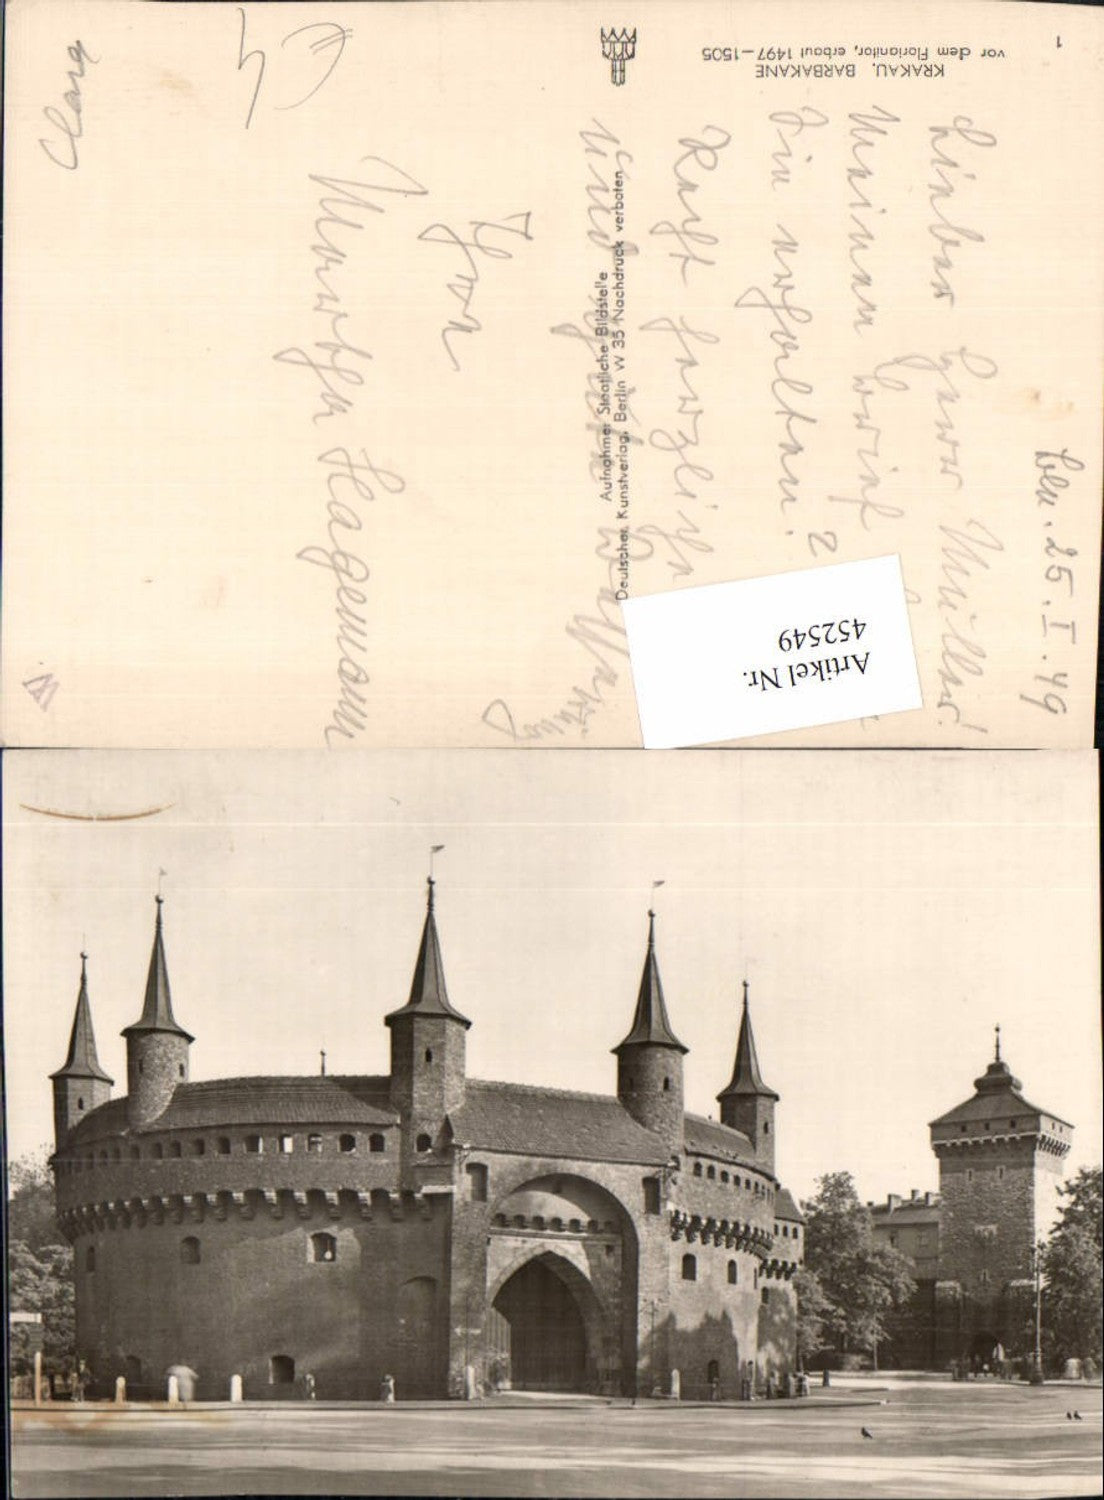 1
KRAKAU. BARBAKANE
vor dem Florianitor, erbaut 1497—1505
Aufnahme: Staatliche Bildstelle
Deutscher Kunstverlag, Berlin W 35 Nachdruck verboten
Bln. 25. I. 49
Lieber Herr Müller!
Meinen Brief
Sie erhalten. 2
Recht herzliche
und
Ihre
Marthe Hagemann
Artikel Nr.
452549